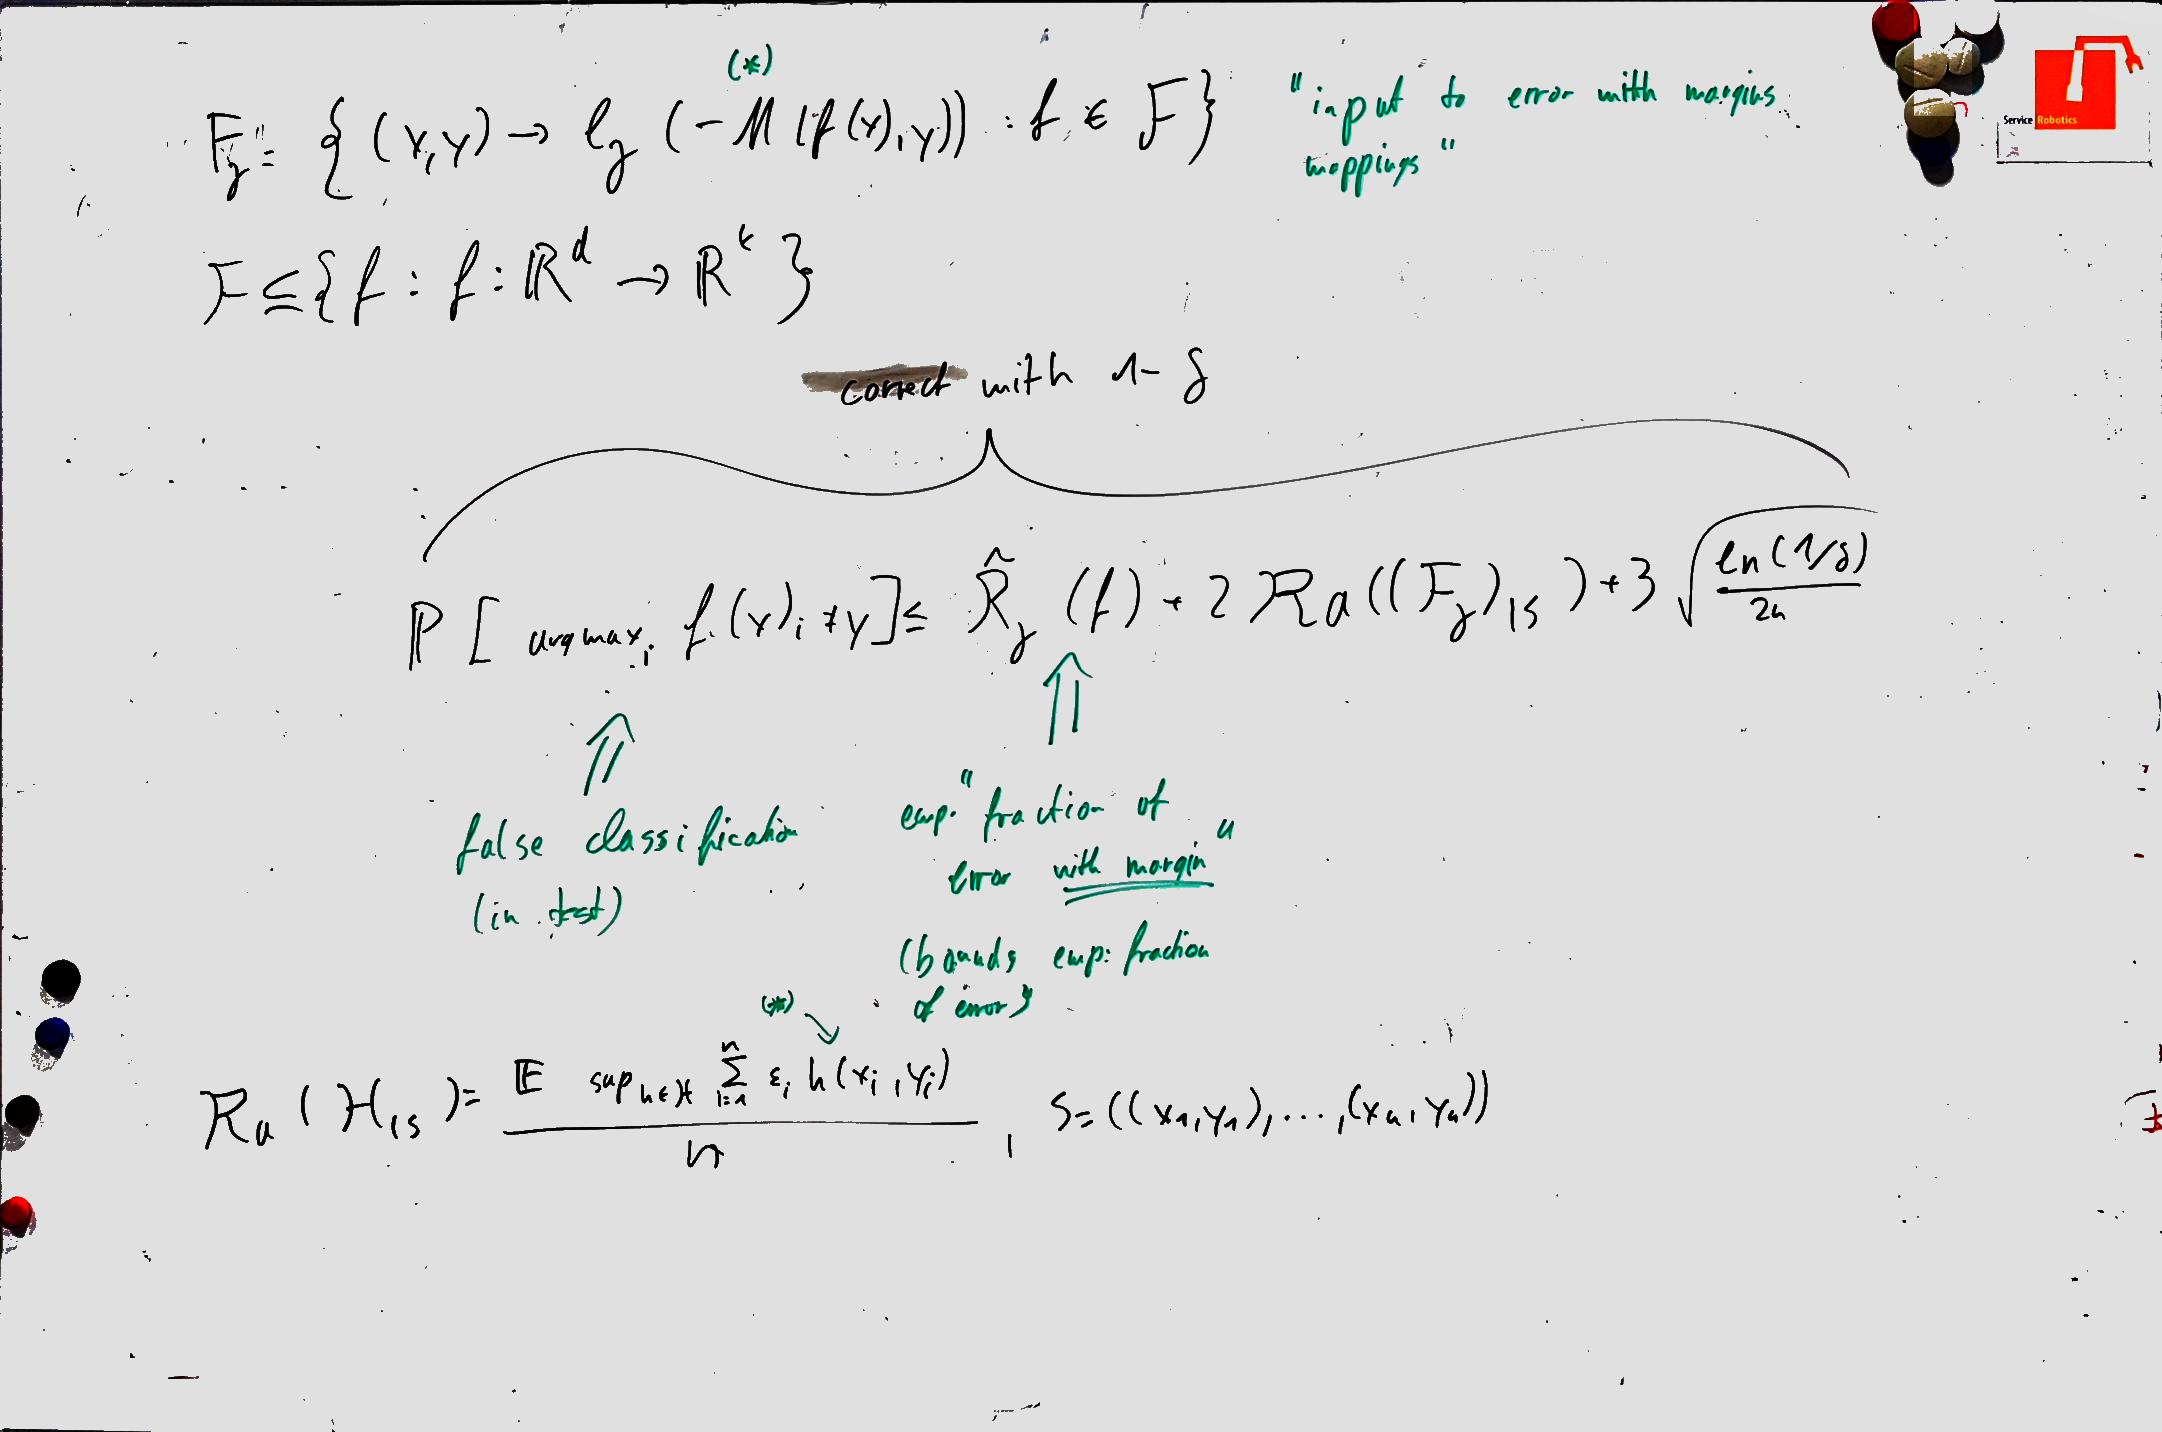 (*)
F_γ := { (x,y) → ℓ_γ (-M(f(x),y)) : f ∈ F }
"input to error with margins
mappings"
Service Robotics
F ⊆ { f : f : ℝ^d → ℝ^k }
correct with 1-δ
ℙ [ argmax_i f(x)_i ≠ y ] ≤ R̂_γ (f) + 2 Ra((F_γ)_|S) + 3 √(ln(1/δ) / 2n)
false classification
(in test)
emp. "fraction of
error with margin"
(bounds emp. fraction
of error)
(*)
Ra(H_|S) = 𝔼 sup_{h∈H} Σ_{i=1}^n ε_i h(x_i, y_i) / n , S = ((x_1,y_1), ..., (x_n, y_n))